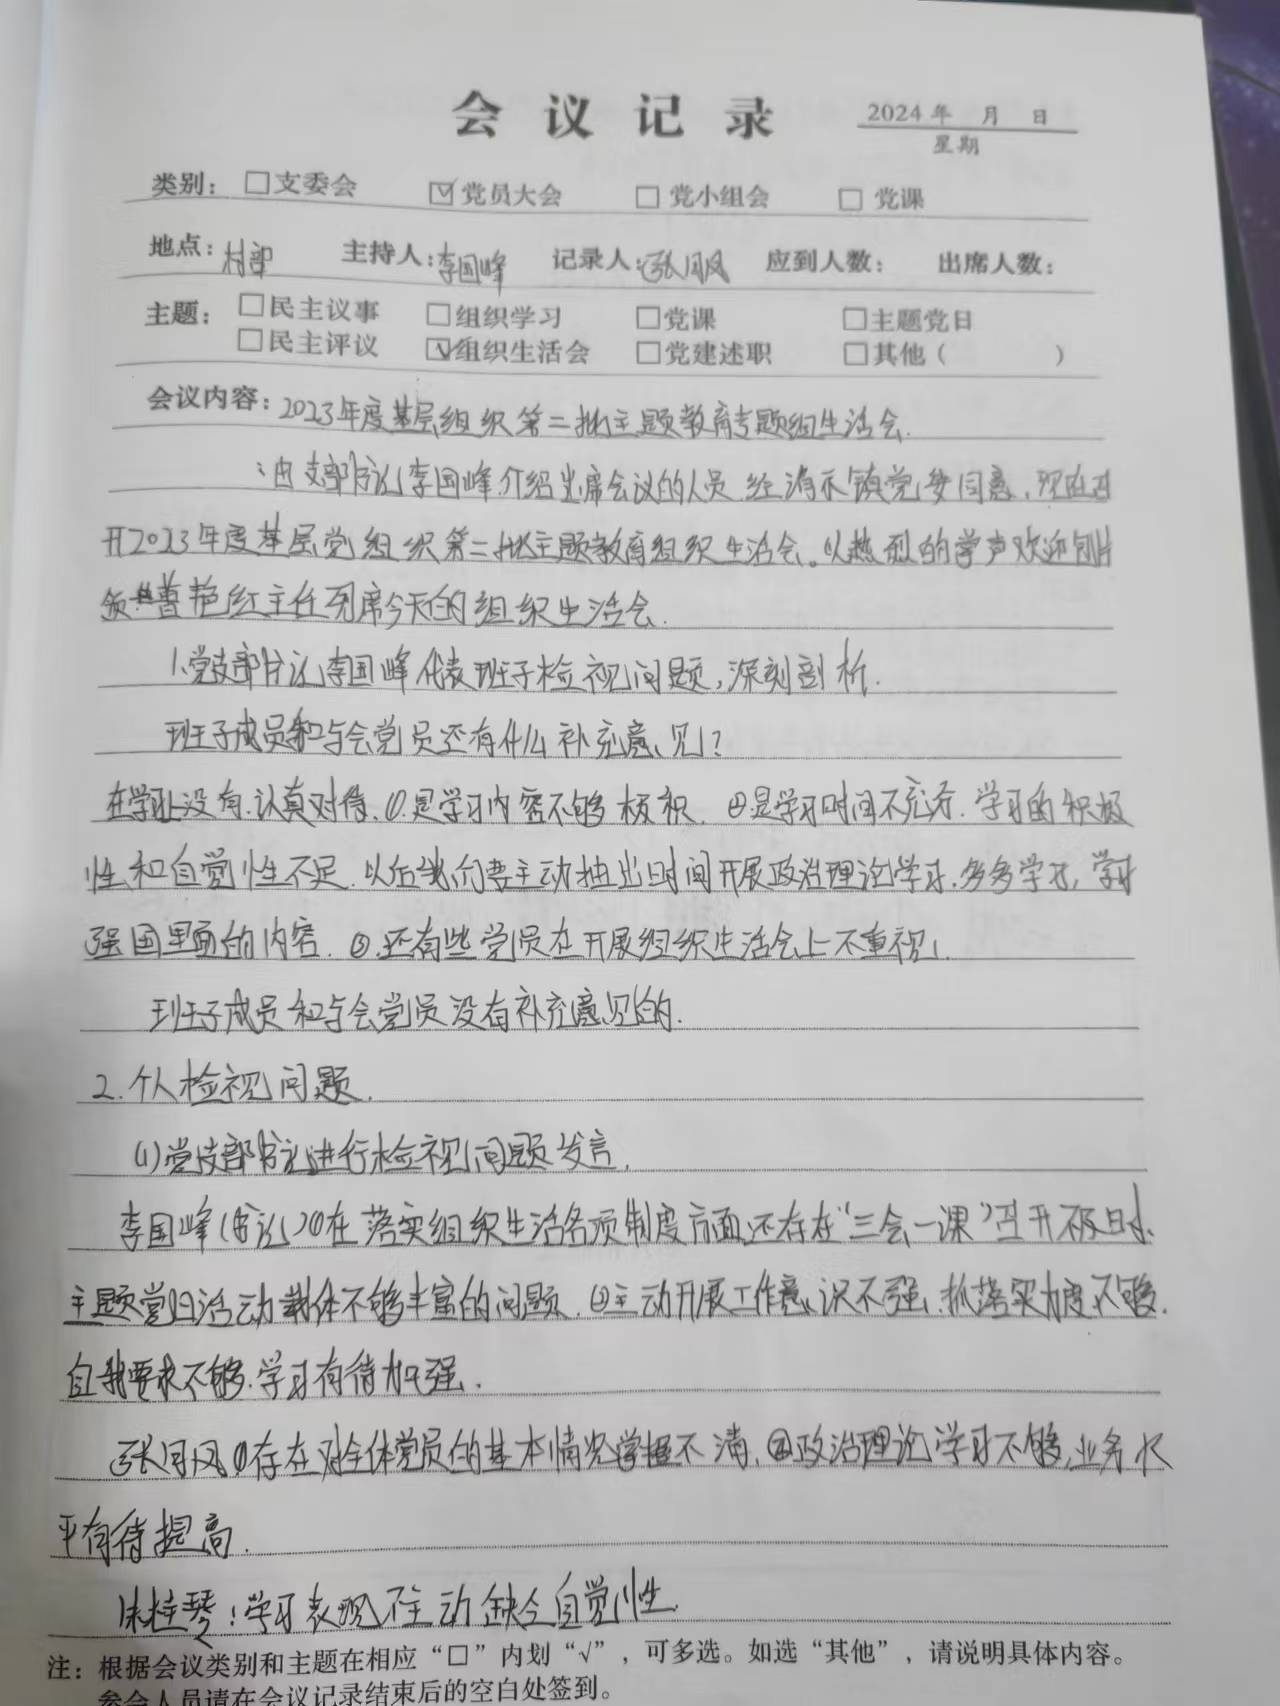 会议记录
2024年 月 日
星期
类别： □支委会 ☑党员大会 □党小组会 □党课
地点：村部 主持人：李国峰 记录人：张月风 应到人数： 出席人数：
主题： □民主议事 □组织学习 □党课 □主题党日
□民主评议 ☑组织生活会 □党建述职 □其他（ ）
会议内容：2023年度基层组织第二批主题教育专题组生活会.
：由支部书记李国峰介绍出席会议的人员 经 镇党委同意，现在召
开2023年度基层党组织第二批主题教育组织生活会。以热烈的掌声欢迎包片
领 曹艳红主任列席今天的组织生活会.
1.党支部书记李国峰代表班子检视问题，深刻剖析.
班子成员和与会党员还有什么补充意见？
在学习上没有.认真对待.①.是学习内容不够积极. ②是学习时间不充分.学习的积极
性和自觉性不足.以后我们要主动抽出时间开展政治理论学习.多多学习，学习
强国里面的内容. ③.还有些党员在开展组织生活会上不重视！
班子成员和与会党员没有补充意见的.
2.个人检视问题.
(1)党支部书记进行检视问题发言.
李国峰(书记)①在落实组织生活各项制度方面还存在“三会一课”召开不及时.
主题党日活动载体不够丰富的问题.②主动开展工作意识不强.抓落实力度不够.
自我要求不够.学习有待加强.
张月风①存在对全体党员的基本情况掌握不清.②政治理论学习不够，业务水
平有待提高.
朱桂琴：学习表现不主动 缺乏自觉性.
注：根据会议类别和主题在相应“□”内划“√”，可多选。如选“其他”，请说明具体内容。
参会人员请在会议记录结束后的空白处签到。